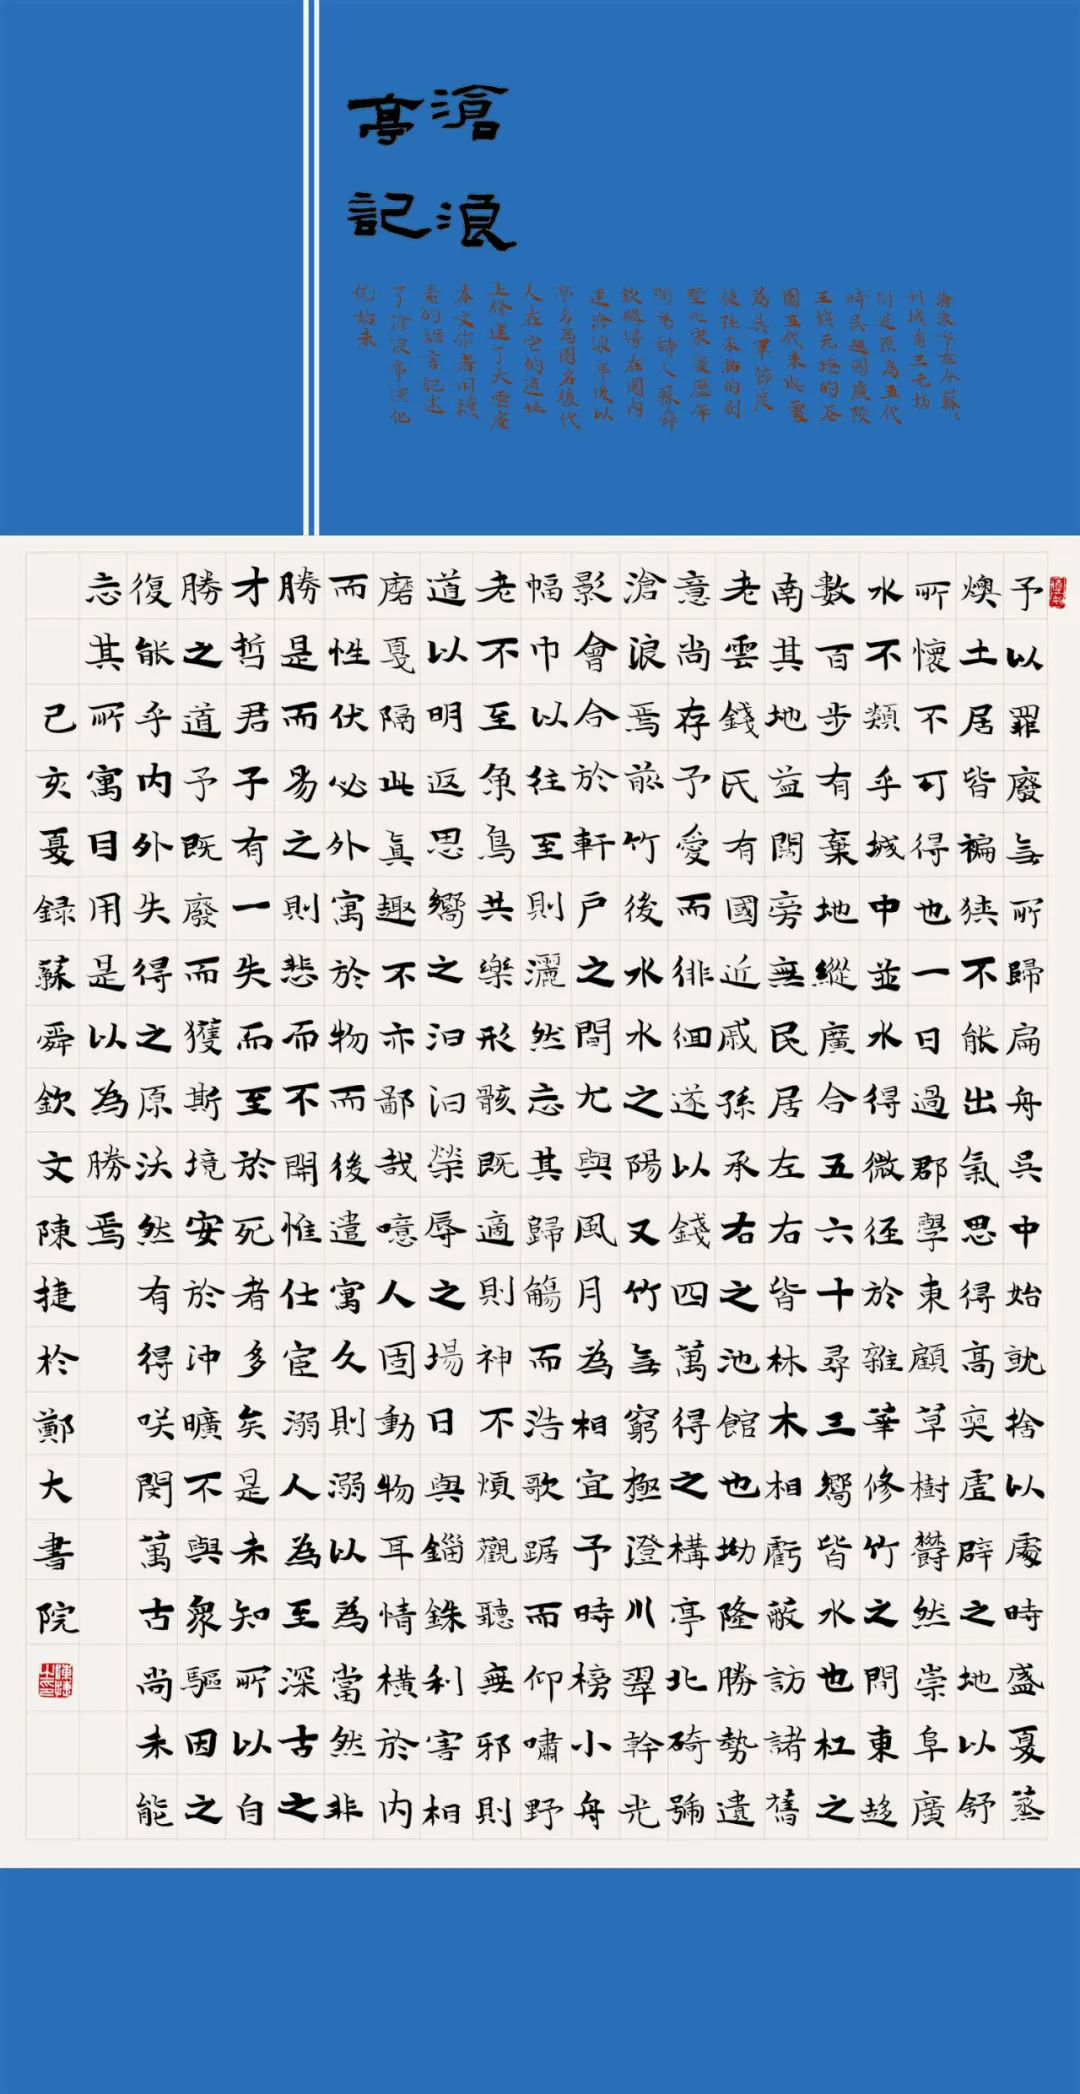 滄浪
亭記
滄浪亭在今蘇
州城有三元坊
附近原為五代
時吳越國廣陵
王錢元璙的花
園五代末此處
為吳軍節度
使孫承祐的別
墅北宋慶曆年
間為詩人蘇舜
欽購得在園內
建滄浪亭後以
亭名為園名後代
人在它的遺址
上修建了大雲庵
本文作者用樸
素的語言記述
了滄浪亭演化
的始末
予以罪廢無所歸扁舟吳中始就捨以處時盛夏蒸
燠土居皆褊狹不能出氣思得高爽虛辟之地以舒
所懷不可得也一日過郡學東顧草樹鬱然崇阜廣
水不類乎城中並水得微徑於雜華修竹之間東趍
數百步有棄地縱廣合五六十尋三嚮皆水也杠之
南其地益闊旁無民居左右皆林木相虧蔽訪諸舊
老雲錢氏有國近戚孫承右之池館也坳隆勝勢遺
意尚存予愛而徘徊遂以錢四萬得之構亭北碕號
滄浪焉前竹後水水之陽又竹無窮極澄川翠幹光
影會合於軒戶之間尤與風月為相宜予時榜小舟
幅巾以往至則灑然忘其歸觴而浩歌踞而仰嘯野
老不至魚鳥共樂形骸既適則神不煩觀聽無邪則
道以明返思嚮之汩汩榮辱之場日與錙銖利害相
磨戛隔此真趣不亦鄙哉噫人固動物耳情橫於內
而性伏必外寓於物而後遣寓久則溺以為當然非
勝是而易之則悲而不開惟仕宦溺人為至深古之
才哲君子有一失而至於死者多矣是未知所以自
勝之道予既廢而獲斯境安於沖曠不與眾驅因之
復能乎內外失得之原沃然有得咲閔萬古尚未能
忘其所寓目用是以為勝焉
己亥夏録蘇舜欽文陳捷於鄭大書院